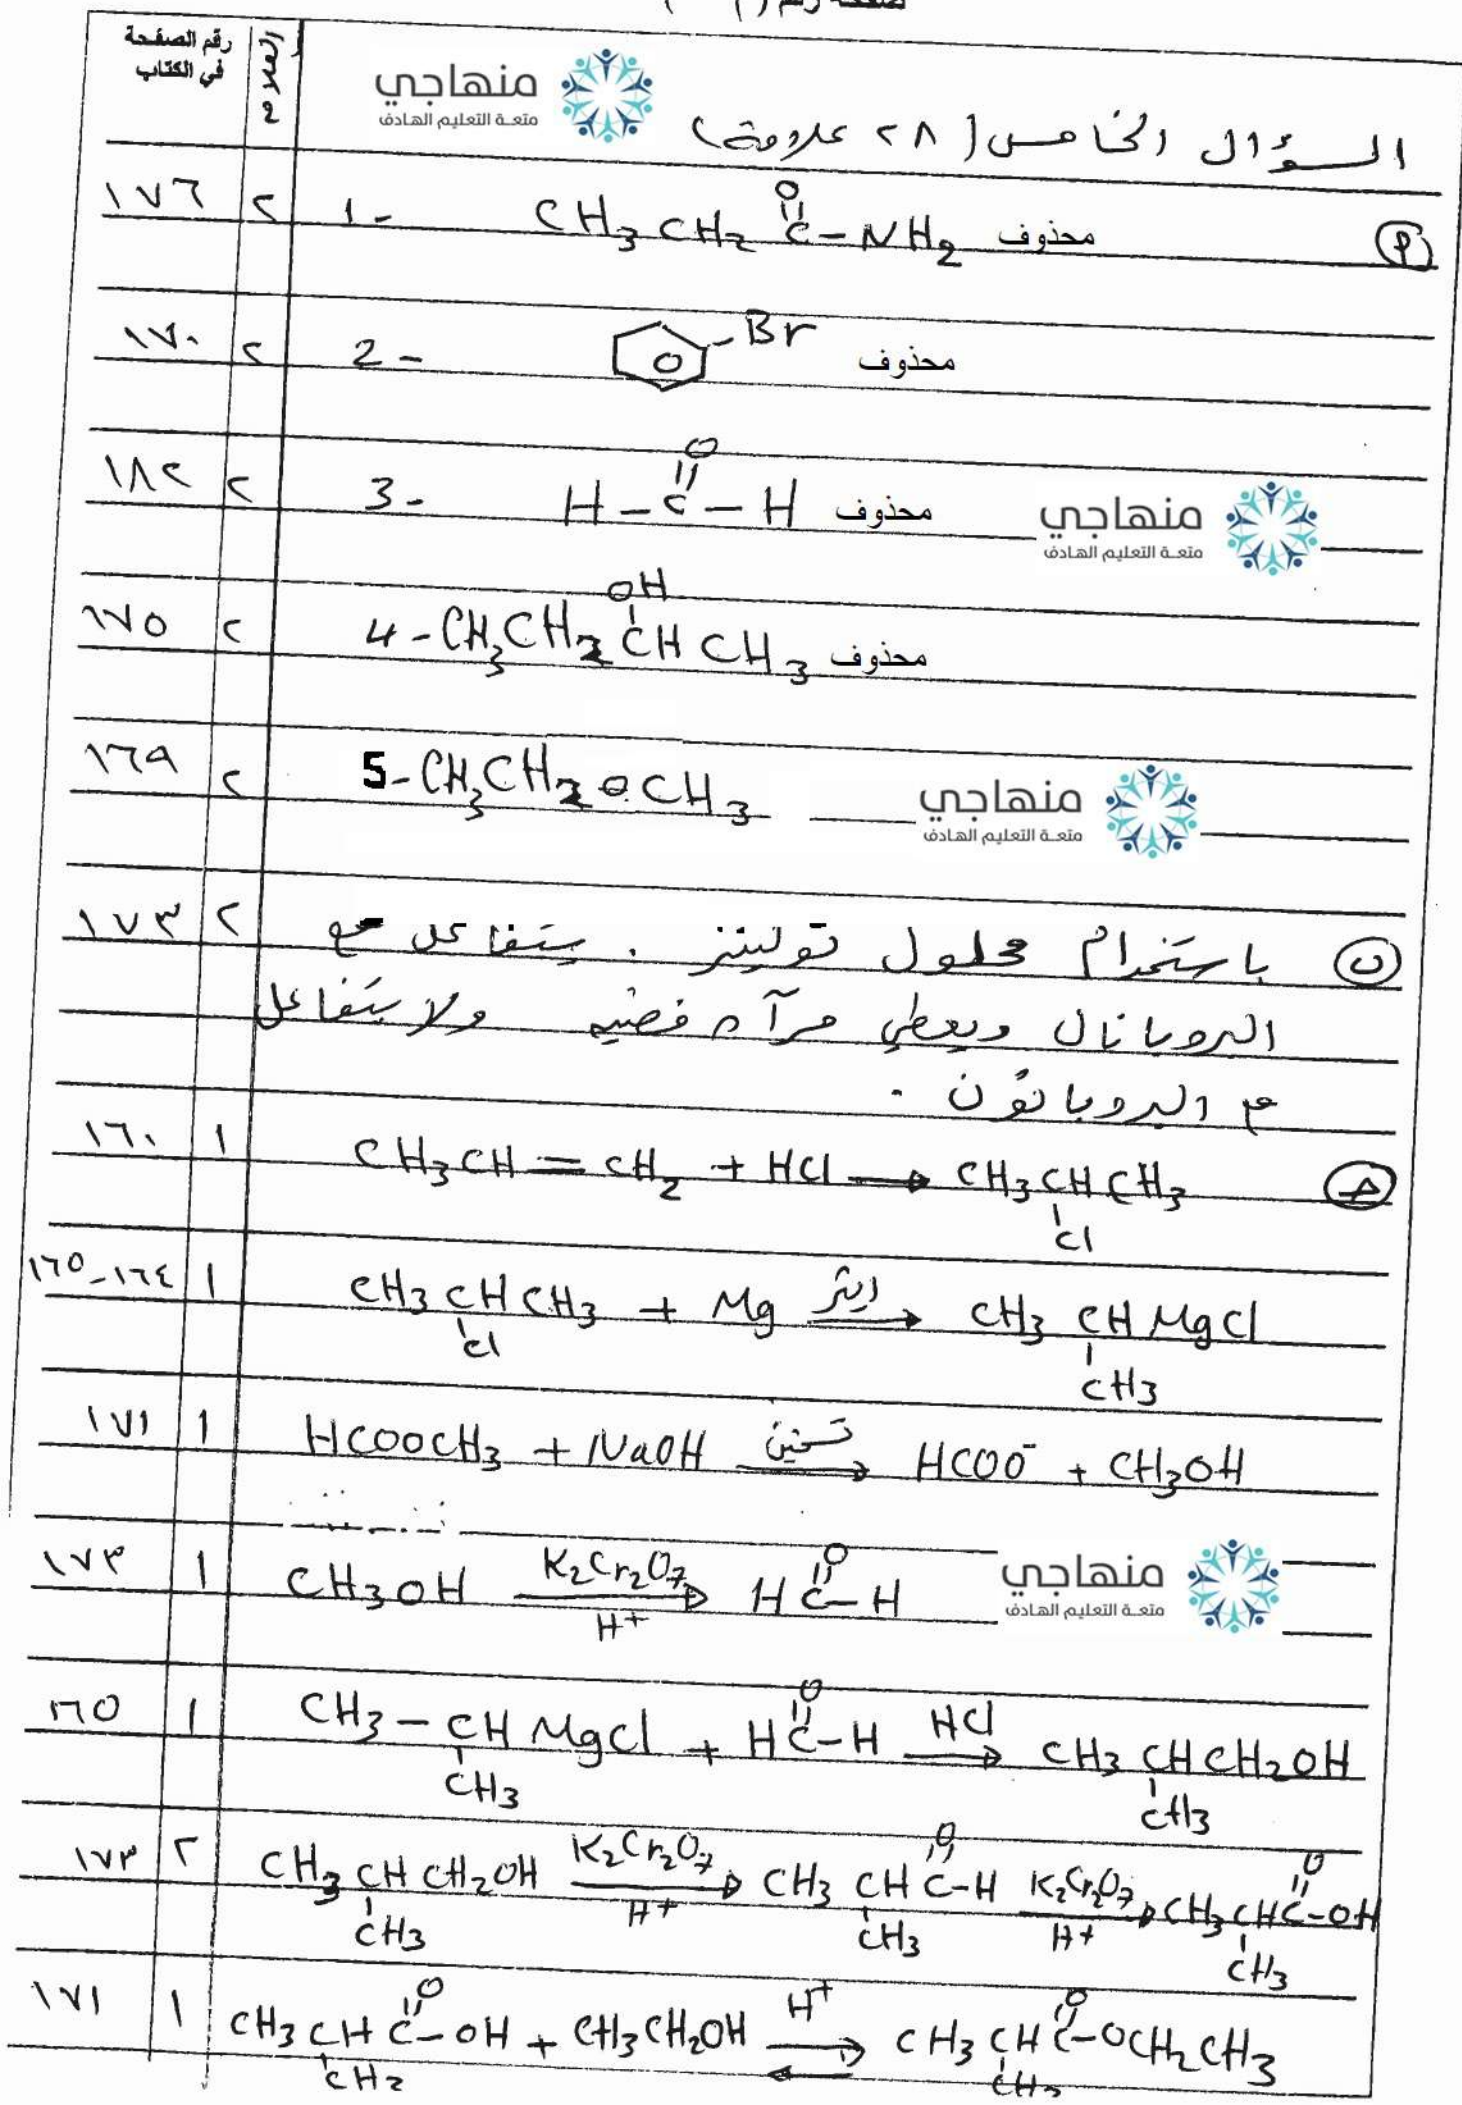 رقم الصفحة في الكتاب
العلامة
منهاجي
متعة التعليم الهادف
السؤال الخامس (٢٨ علامة)
١٧٦ ٢ 1- CH3CH2C(=O)-NH2 محذوف أ
١٧٠ ٢ 2- Br محذوف
١٨٢ ٢ 3- H-C(=O)-H محذوف
منهاجي
متعة التعليم الهادف
١٧٥ ٢ 4-CH3CH2CH(OH)CH3 محذوف
١٦٩ ٢ 5-CH3CH2OCH3
منهاجي
متعة التعليم الهادف
١٧٣ ٢ ب باستخدام محلول تولينز . يتفاعل مع
البروبانال ويعطي مرآة فضية ولا يتفاعل
مع البروبانون .
١٦٠ ١ CH3CH=CH2 + HCl → CH3CH(Cl)CH3 ج
١٦٤-١٦٥ ١ CH3CH(Cl)CH3 + Mg ايثر → CH3CH(CH3)MgCl
١٧١ ١ HCOOCH3 + NaOH تسخين → HCOO⁻ + CH3OH
١٧٣ ١ CH3OH K2Cr2O7 / H+ → HC(=O)-H
منهاجي
متعة التعليم الهادف
١٦٥ ١ CH3-CH(CH3)MgCl + HC(=O)-H HCl → CH3CH(CH3)CH2OH
١٧٣ ٢ CH3CH(CH3)CH2OH K2Cr2O7 / H+ → CH3CH(CH3)C(=O)-H K2Cr2O7 / H+ → CH3CH(CH3)C(=O)-OH
١٧١ ١ CH3CH(CH3)C(=O)-OH + CH3CH2OH H+ ⇌ CH3CH(CH3)C(=O)-OCH2CH3